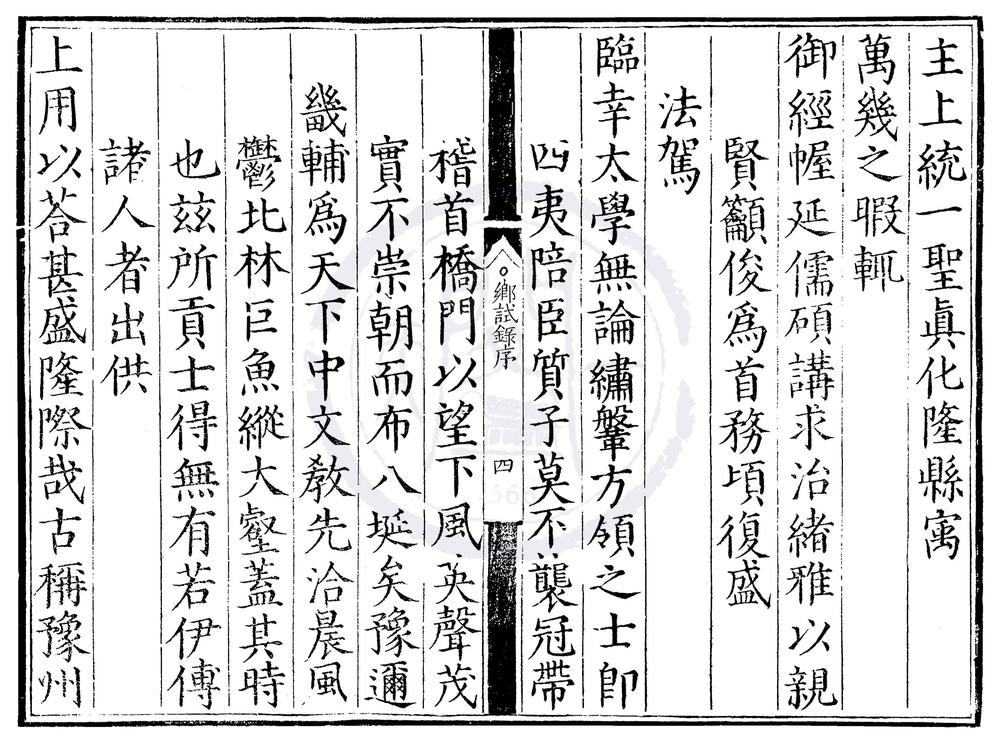 主上統一聖眞化隆縣寓
萬幾之暇輒
御經幄延儒碩講求治緒雅以親
賢籲俊爲首務頃復盛
法駕
臨幸太學無論繡鞶方領之士卽
四夷陪臣質子莫不襲冠帶
鄉試錄序
四
稽首橋門以望下風英聲茂
實不崇朝而布八埏矣豫邇
畿輔爲天下中文敎先洽晨風
鬱北林巨魚縱大壑蓋其時
也茲所貢士得無有若伊傅
諸人者出供
上用以荅甚盛隆際哉古稱豫州